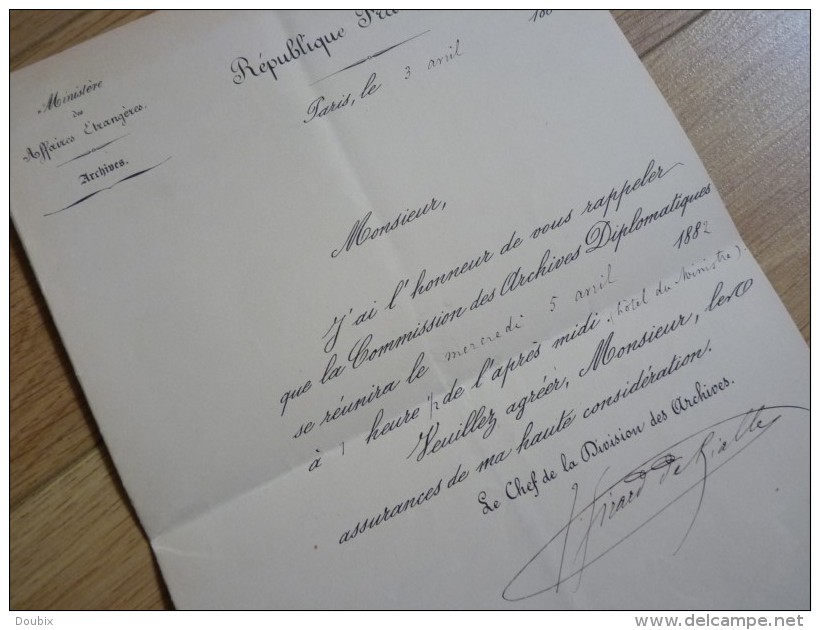 République
188
Paris, le 3 avril
Ministère
des
Affaires Etrangères.
Archives.
Monsieur,
J'ai l'honneur de vous rappeler
que la Commission des Archives Diplomatiques
se réunira le mercredi 5 avril 1882
à 1 heure 1/2 de l'après midi. (hôtel du Ministre).
Veuillez agréer, Monsieur, les
assurances de ma haute considération.
Le Chef de la Division des Archives.
Girard de Rialle
Doubix
delcampe.net